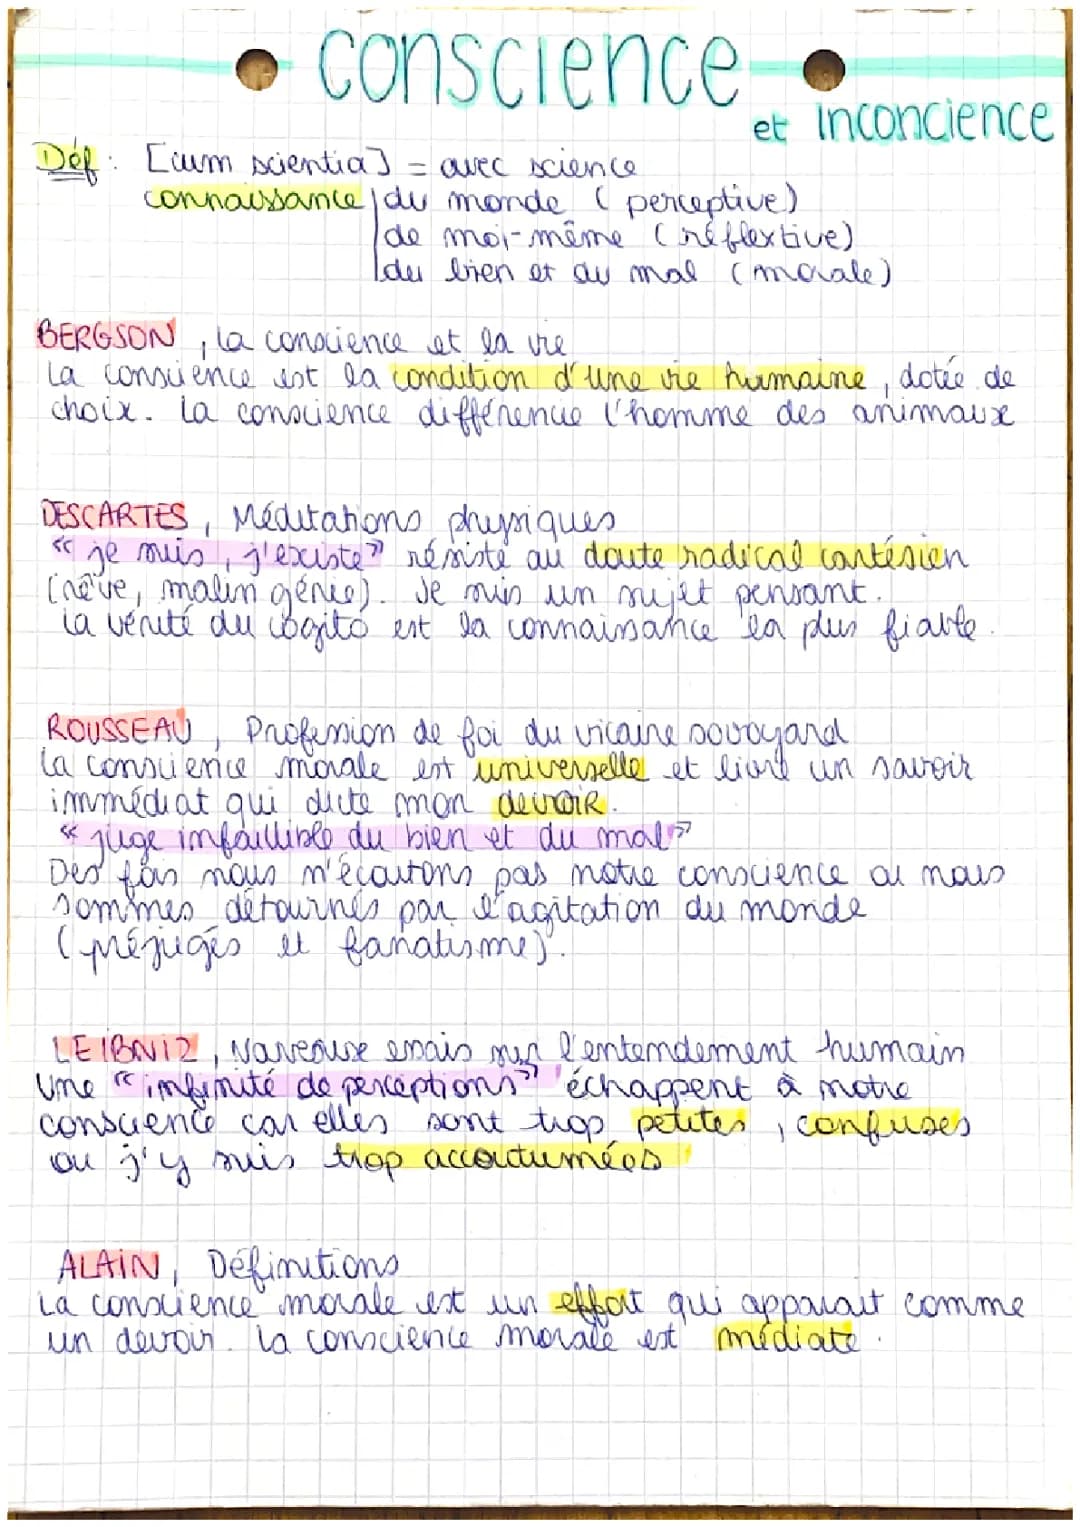 conscience
et inconcience
Déf : [cum scientia] = avec science
connaissance du monde (perceptive)
de moi-même (réflextive)
du bien et du mal (morale)
BERGSON, la conscience et la vie
La conscience est la condition d'une vie humaine, dotée de
choix. La conscience différencie l'homme des animaux
DESCARTES, Méditations physiques
« je suis, j'existe » résiste au doute radical cartésien
(rêve, malin génie). Je suis un sujet pensant.
La vérité du cogito est la connaissance la plus fiable.
ROUSSEAU, Profession de foi du vicaire savoyard
La conscience morale est universelle et livre un savoir
immédiat qui dicte mon devoir.
« juge infaillible du bien et du mal »
Des fois nous n'écoutons pas notre conscience ou nous
sommes détournés par l'agitation du monde
(préjugés et fanatisme).
LEIBNIZ, Nouveaux essais sur l'entendement humain
Une « infinité de perceptions » échappent à notre
conscience car elles sont trop petites, confuses
ou j'y suis trop accoutumées
ALAIN, Définitions
La conscience morale est un effort qui apparait comme
un devoir. La conscience morale est médiate.